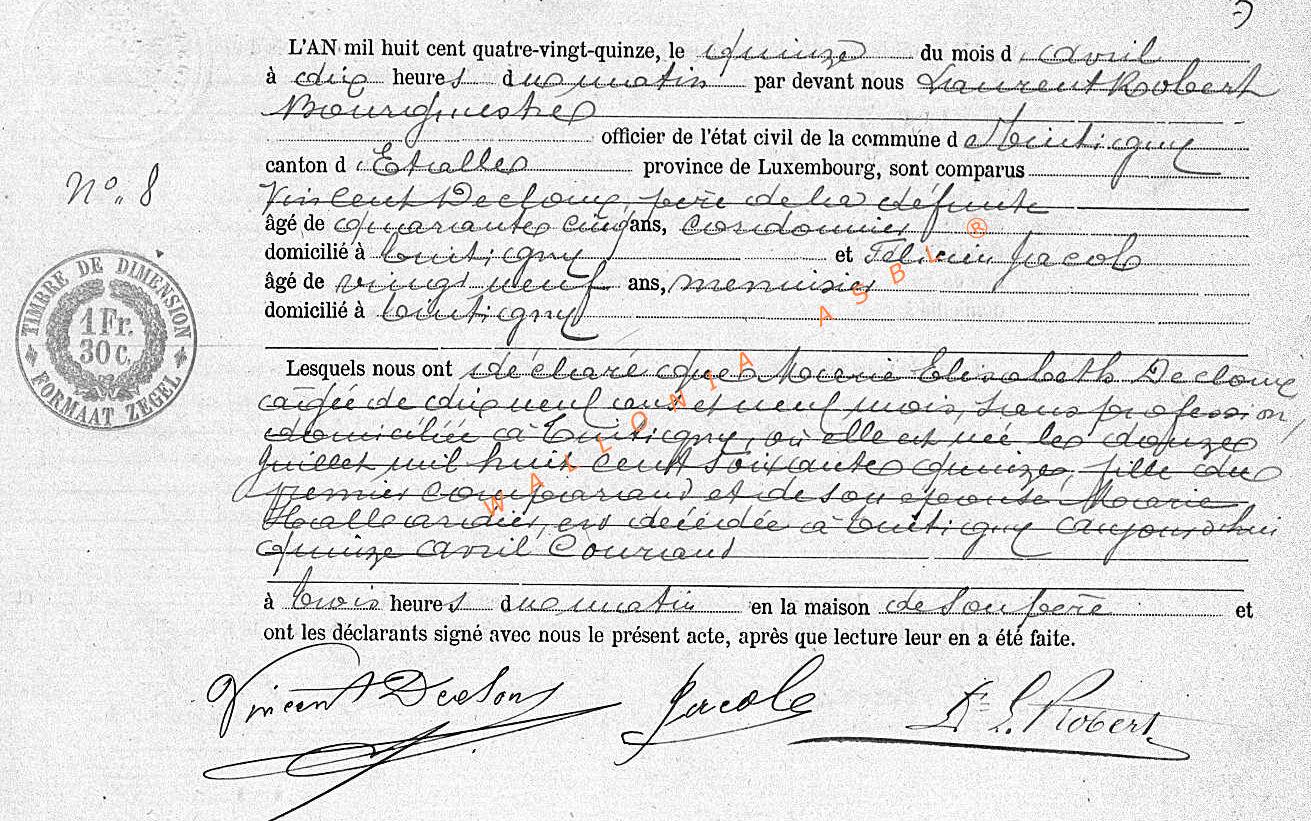 L'AN mil huit cent quatre-vingt-quinze, le quinze du mois d'avril
à dix heures du matin par devant nous Laurent Robert
Bourgmestre
officier de l'état civil de la commune de Tintigny
canton d'Etalle province de Luxembourg, sont comparus
N° 8
Vincent Declour, père de la défunte
âgé de quarante cinq ans, cordonnier
domicilié à Tintigny et Félicien Jacob
âgé de vingt neuf ans, menuisier
domicilié à Tintigny
TIMBRE DE DIMENSION
1 Fr.
30 C.
FORMAAT ZEGEL
WALLONIA ASBL ®
Lesquels nous ont déclaré que Marie Elisabeth Declour
âgée de dix neuf ans et neuf mois, sans profession,
domiciliée à Tintigny, où elle est née le douze
Juillet mil huit cent soixante quinze, fille du
premier comparant et de son épouse Marie
est décédée à Tintigny aujourd'hui
quinze avril courant
à trois heures du matin en la maison de son père et
ont les déclarants signé avec nous le présent acte, après que lecture leur en a été faite.
Vincent Jacob L. Robert